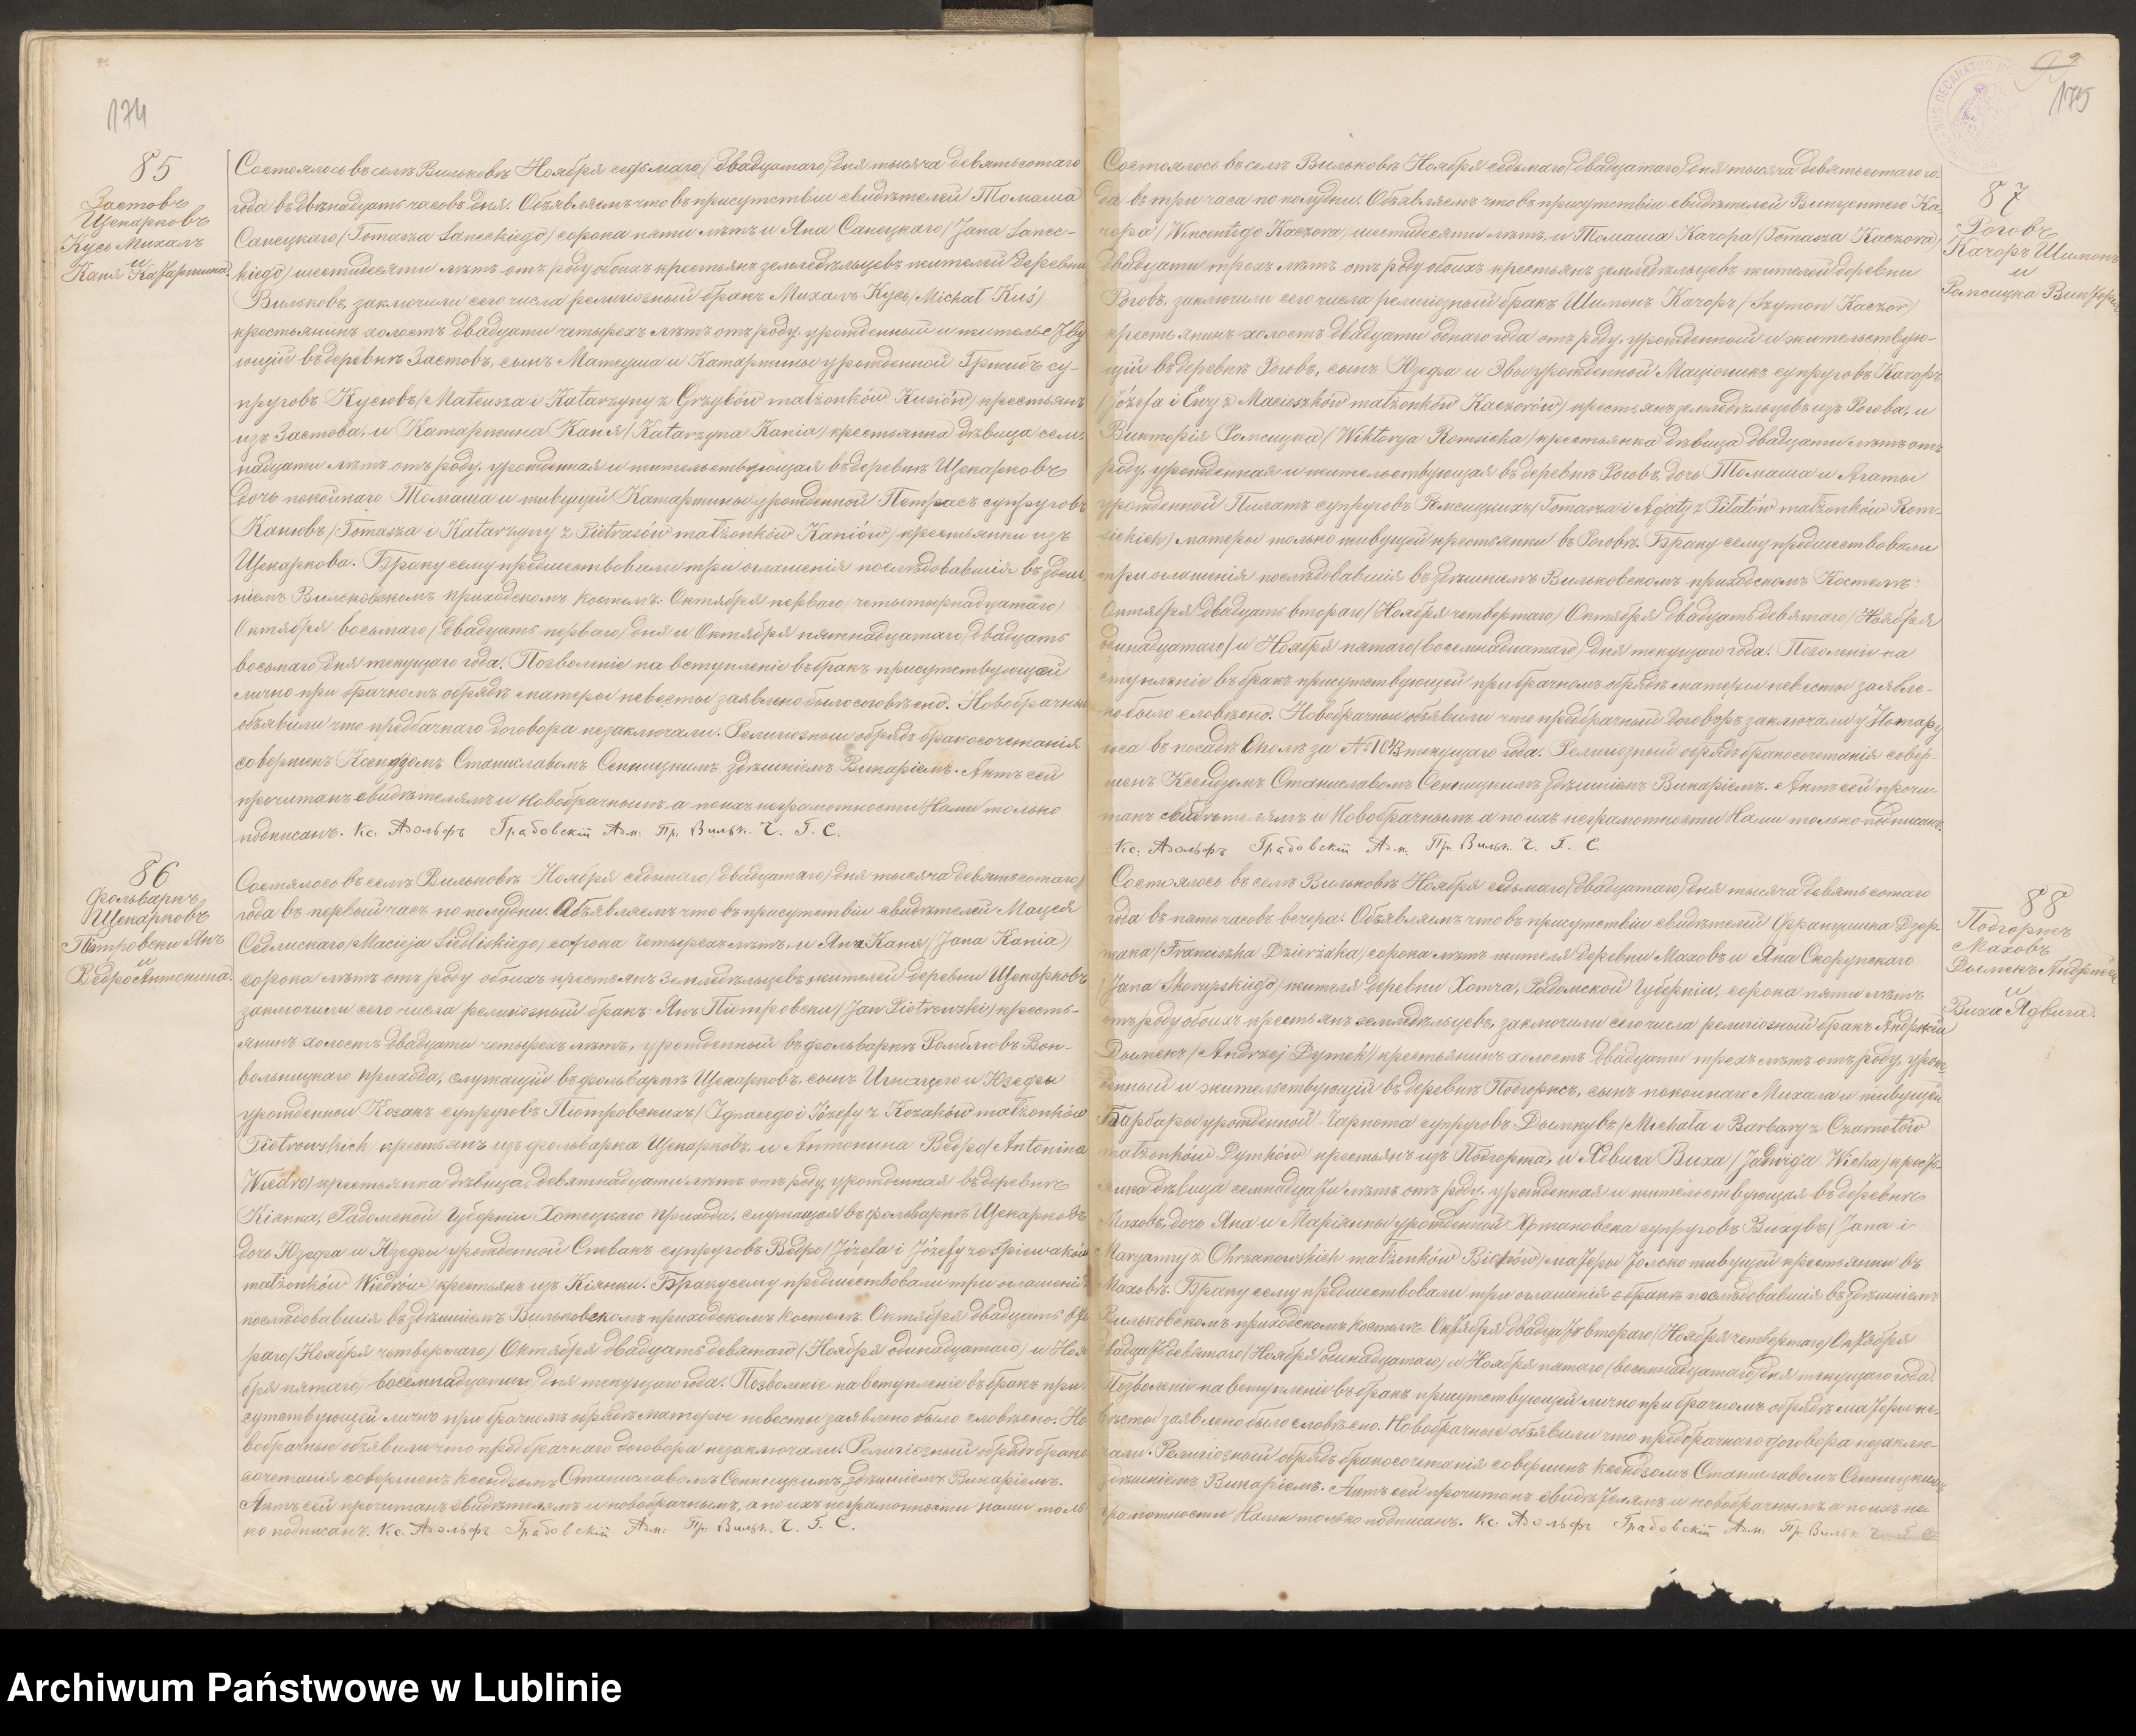 174
85
Застовъ
Щекарковъ
Кусь Михалъ
и
Каня Катаржина.
Состоялось въ селѣ Вильковѣ Ноября седьмаго (двадцатаго) дня тысяча девятьсотаго
года въ двѣнадцать часовъ дня. Объявляемъ что въ присутствіи свидѣтелей Томаша
Санецкаго (Tomasza Saneckiego) сорока пяти лѣтъ и Яна Санецкаго (Jana Sanec-
kiego) шестидесяти лѣтъ отъ роду обоихъ крестьянъ земледѣльцевъ жителей деревни
Вильковъ, заключили сего числа религіозный бракъ Михалъ Кусь (Michał Kuś)
крестьянинъ холостъ двадцати четырехъ лѣтъ отъ роду, урожденный и жительству
ющій въ деревнѣ Застовъ, сынъ Матеуша и Катаржины урожденной Гржибъ су-
пруговъ Кусювъ (Mateusza i Katarzyny z Grzybów małżonków Kusiów) крестьянъ
изъ Застова, и Катаржина Каня (Katarzyna Kania) крестьянка дѣвица сем-
надцати лѣтъ отъ роду, урожденная и жительствующая въ деревнѣ Щекарковъ
дочь покойнаго Томаша и живущей Катаржины урожденной Петрасъ супруговъ
Канювъ (Tomasza i Katarzyny z Pietrasów małżonków Kaniów) крестьянки изъ
Щекаркова. Браку сему предшествовали три оглашенія послѣдовавшія въ здѣш-
ніемъ Вильковскомъ приходскомъ костелѣ: Октября перваго (четырнадцатаго)
Октября восьмаго (двадцать перваго) дня и Октября пятнадцатаго (двадцать
восьмаго) дня текущаго года. Позволеніе на вступленіе въ бракъ присутствующей
лично при брачномъ обрядѣ матеры невесты заявлено было словѣсно. Новобрачныи
объявили что предбачнаго договора незаключали. Религіозныи обрядъ бракосочетанія
совершенъ Ксендзомъ Станиславомъ Сенницкимъ здѣшніемъ Викаріемъ. Актъ сей
прочитанъ свидѣтелямъ и новобрачнымъ, а по ихъ неграмотности Нами только
подписанъ. Кс. Адольфъ Грабовскій Адм. Пр. Вильк. Ч. Г. С.
86
Фольваркъ
Щекарковъ
Піотровски Янъ
и
Ведро Антонина.
Состялось въ селѣ Вильковѣ Ноября седьмаго (двадцатаго) дня тысяча девятьсотаго
года въ первый часъ по полудни. Объявляемъ что въ присутствіи свидѣтелей Мацея
Седлискаго (Macieja Siedliskiego) сорока четырехъ лѣтъ, и Яна Каня (Jana Kania)
сорока лѣтъ отъ роду обоихъ крестьянъ земледѣльцевъ жителей деревни Щекарковъ
заключили сего числа религіозный бракъ: Янъ Піотровски (Jan Piotrowski) кресть-
янинъ холостъ двадцати четырехъ лѣтъ, урожденный въ фольваркѣ Ромблювъ Вон-
вольницкаго прихода, служащій въ фольваркѣ Щекарковъ, сынъ Игнацего и Юзефы
урожденной Козакъ супруговъ Піотровскихъ (Ignacego i Józefy z Kozaków małżonków
Piotrowskich) крестьянъ изъ фольварка Щекарковъ, и Антонина Ведро (Antonina
Wiedro) крестьянка дѣвица, девятнадцати лѣтъ отъ роду, урожденная въ деревнѣ
Кіянка, Радомской Губерніи Хотецкаго прихода, служащая въ фольваркѣ Щекарковъ
дочь Юзефа и Юзефы урожденной Спевакъ супруговъ Ведро (Józefa i Józefy ze Śpiewaków
małżonków Wiedrów) крестьянъ изъ Кіянки. Браку сему предшествовали три оглашенія
послѣдовавшія въ здѣшніемъ Вильковскомъ приходскомъ костелѣ: Октября двадцать вто
раго (Ноября четвертаго) Октября двадцать девятаго (Ноября одинадцатаго) и Ноя
бря пятаго (восемнадцатаго) дня текущаго года. Позволеніе на вступленіе въ бракъ при-
сутствующей лично при брачномъ обрядѣ матеры невесты заявлено было словѣсно. Но
вобрачные объявили что предбрачнаго договора незаключали. Религіозный обрядъ брако
сочетанія совершенъ Ксендзомъ Станиславомъ Сенницкимъ, здѣшніемъ Викаріемъ.
Актъ сей прочитанъ свидѣтелямъ и новобрачнымъ, а по ихъ неграмотности нами толь
ко подписанъ. Кс. Адольфъ Грабовскій Адм. Пр. Вильк. Ч. Г. С.
175
87
Роговъ
Качоръ Шимонъ
и
Ромсицка Викторія
Состоялось въ селѣ Вильковѣ Ноября седьмаго (двадцатаго) дня тысяча девятьсотаго го-
да въ три часа по полудни. Объявляемъ что въ присутствіи свидѣтелей Винцентего Ка-
чора (Wincentego Kaczora) шестидесяти лѣтъ, и Томаша Качора (Tomasza Kaczora)
двадцати трехъ лѣтъ отъ роду обоихъ крестьянъ земледѣльцевъ жителей деревни
Роговъ, заключили сего числа религіозный бракъ Шимонъ Качоръ (Szymon Kaczor)
крестьянинъ холостъ двадцати однаго года отъ роду, урожденный и жительствую-
щій въ деревнѣ Роговъ, сынъ Юзефа и Эвы урожденной Маціошекъ супруговъ Качоръ
(Józefa i Ewy z Macioszków małżonków Kaczorów) крестьянъ земледѣльцевъ изъ Рогова, и
Викторія Ромсицка (Wiktorya Romsicka) крестьянка дѣвица двадцати лѣтъ отъ
роду, урожденная и жительствующая въ деревнѣ Роговъ, дочь Томаша и Агаты
урожденной Пилатъ супруговъ Ромсицкихъ (Tomasza i Agaty z Piłatów małżonków Rom-
sickich) матеры только живущей крестьянки въ Роговѣ. Браку сему предшествовали
три оглашенія послѣдовавшія въ здѣшніемъ Вильковскомъ приходскомъ Костелѣ:
Октября двадцать втораго (Ноября четвертаго) Октября двадцать девятаго (Ноября
одинадцатаго) и Ноября пятаго (восемнадцатаго) дня текущаго года. Позоленіе на
вступленіе въ бракъ присутствующей при брачномъ обрядѣ матеры невѣсты заявле-
но было словѣсно. Новобрачные объявили что предбрачный договоръ заключали у Нотару
иса въ посадѣ Ополѣ за № 1043 текущаго года. Религіозный обрядъ бракосочетанія совер-
шенъ Ксендзомъ Станиславомъ Сенницкимъ здѣшніемъ Викаріемъ. Актъ сей прочи-
танъ свидѣтелямъ и Новобрачнымъ а по ихъ неграмотности Нами только подписанъ.
Кс. Адольфъ Грабовскій Адм. Пр. Вильк. Ч. Г. С.
88
Подгоржъ
Маховъ
Дымекъ Андржей
и
Виха Ядвига.
Состоялось въ селѣ Вильковѣ Ноября седьмаго (двадцатаго) дня тысяча девятьсотаго
года въ пять часовъ вечера. Объявляемъ что въ присутствіи свидѣтелей Францишка Дзер-
жака (Franciszka Dzierżaka) сорока лѣтъ жителя деревни Маховъ и Яна Скорупскаго
(Jana Skorupskiego) жителя деревни Хотча, Радомской Губерніи, сорока пяти лѣтъ
отъ роду обоихъ крестьянъ земледѣльцевъ, заключили сего числа религіозный бракъ Андржей
Дымекъ (Andrzej Dymek) крестьянинъ холостъ двадцати трехъ лѣтъ отъ роду, урож-
денный и жительствующій въ деревнѣ Подгоржъ, сынъ покойнаго Михала и живущей
Барбары урожденной Чарнота супруговъ Дымкувъ (Michała i Barbary z Czarnotów
małżonków Dymków) крестьянъ изъ Подгоржа, и Ядвига Виха (Jadwiga Wicha) кресть-
янка дѣвица семнадцати лѣтъ отъ роду, урожденная и жительствующая въ деревнѣ
Маховъ, дочь Яна и Маріянны урожденной Хржановска супруговъ Вихувъ (Jana i
Maryanny z Chrzanowskich małżonków Wichów) матеры только живущей крестьянки въ
Маховѣ. Браку сему предшествовали три оглашенія о бракѣ послѣдовавшія въ здѣшніемъ
Вильковскомъ приходскомъ костелѣ: Октября двадцать втораго (Ноября четвертаго) Октября
двадцать девятаго (Ноября одинадцатаго) и Ноября пятаго (восемнадцатаго) дня текущаго года.
Позволеніе на вступленіе въ бракъ присутствующей лично при брачномъ обрядѣ матеры не-
вѣсты заявлено было словѣсно. Новобрачные объявили что предбрачнаго договора незаклю-
чали. Религіозный обрядъ бракосочетанія совершенъ Ксендзомъ Станиславомъ Сенницкимъ
здѣшніемъ Викаріемъ. Актъ сей прочитанъ свидѣтелямъ и новобрачнымъ а по ихъ не-
грамотности Нами только подписанъ. Кс. Адольфъ Грабовскій Адм. Пр. Вильк. Ч. Г. С.
Archiwum Państwowe w Lublinie